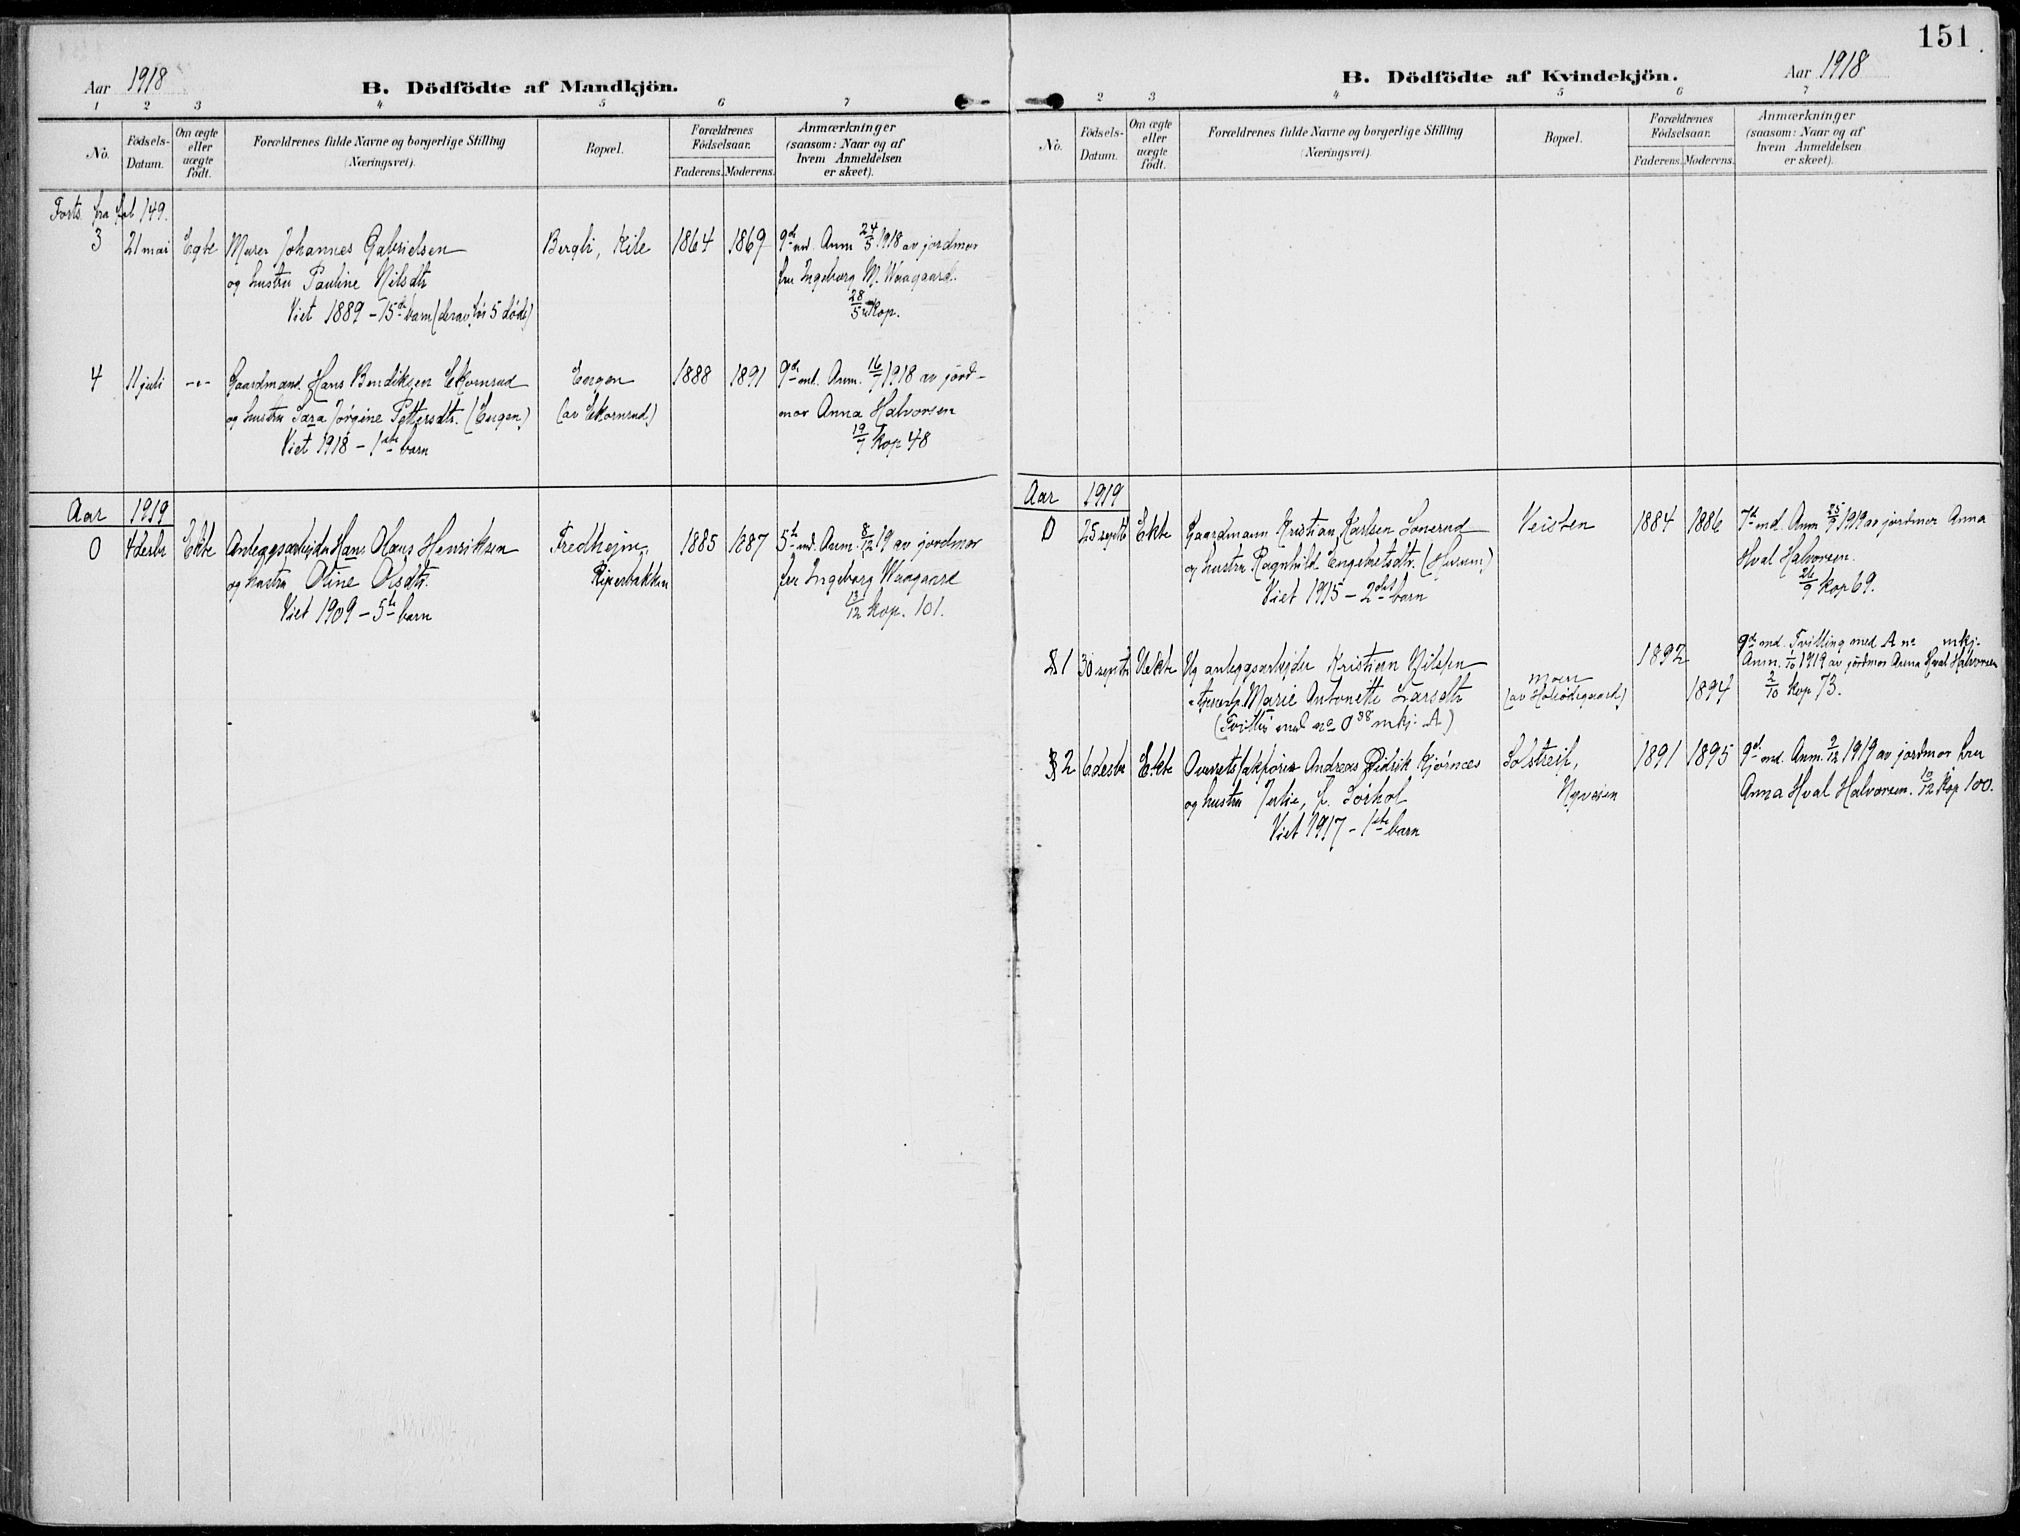 Aar 1918
B. Dödfödte af Mandkjön.
1 2 3 4 5 6 7
No.
Födsels-
Datum.
Om ægte
eller
uægte
födt.
Forældrenes fulde Navne og borgerlige Stilling
(Næringsvei).
Bopæl.
Forældrenes
Födselsaar.
Faderens. Moderens.
Anmærkninger
(saasom: Naar og af
hvem Anmeldelsen
er skeet).
Forts. fra fol 149.
3 21 mai Egte Murer Johannes Gabrielsen Bergli, Kile 1864 1869 9de md. Anm 24/5 1918 av jordmor
og hustru Pauline Nilsdtr fru Ingeborg M. Waagaard.
Viet 1889 – 15de barn (derav før 5 døde) 28/5 kop.
4 11 juli -"- Gaardmand Hans Bendiksen Ekornrud Engen 1888 1891 9de md. Anm. 16/7 1918 av jord-
og hustru Sara Jörgine Pettersdtr. (Engen) (av Ekornrud) mor Anna Halvorsen
Viet 1918 – 1ste barn 19/7 kop 48
Aar 1919
0 4 desbr Ekte Anleggsarbeider Hans Olaus Henriksen Fredheim, 1885 1887 5te md. Anm. 8/12 19 av jordmor
og hustru Oline Olsdtr. Ripenbakken fru Ingeborg Waagaard
Viet 1909 – 5te barn 13/12 kop. 101.
151
B. Dödfödte af Kvindekjön.
Aar 1918
2 3 4 5 6 7
No.
Födsels-
Datum.
Om ægte
eller
uægte
födt.
Forældrenes fulde Navne og borgerlige Stilling
(Næringsvei).
Bopæl.
Forældrenes
Födselsaar.
Faderens. Moderens.
Anmærkninger
(saasom: Naar og af
hvem Anmeldelsen
er skeet).
Aar 1919
0 25 septb Ekte Gaardmann Kristian Karlsen Sonerud Veisten 1884 1886 7de md. Anm 25/9 1919 av jordmor Anna
og hustru Ragnhild Engebretsdtr. (Husum) Hval Halvorsen.
Viet 1915 – 2det barn 26/9 kop 69.
1 30 septbr Uekte Ug anleggsarbeider Kristian Nilsen 1892 9de md. Tvilling med A no mkj.
Marie Antonette Larsdtr Moen 1894 Anm. 1/10 1919 av jordmor Anna Hval Halvorsen
(Tvilling med no 038 mkj. A) 2/10 kop 73.
2 6 desbr Ekte Andreas Didrik Kjörnæs Solstreif, 1891 1895 9de md. Anm. 9/12 1919 av jordmor fru
og hustru f. Sörhol Nyveien Anna Hval Halvorsen. 10/12 kop 100.
Viet 1917 – 1ste barn